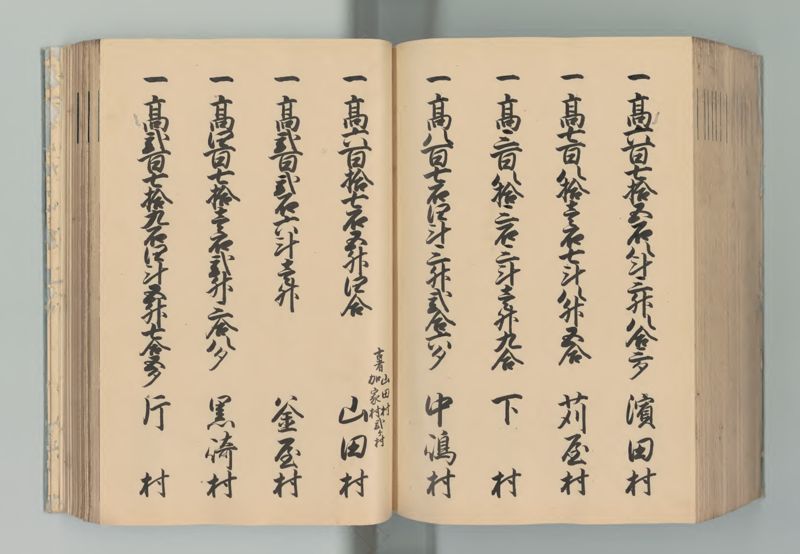 一 高六百七拾五石八斗三升八合三夕 濱田村
一 高七百八拾壱石七斗八升五合 苅屋村
一 高三百八拾三石三斗壱升九合 下村
一 高八百七石四斗三升弐合六夕 中嶋村
一 高六百拾七石五升四合 山田村
古者山田村
加家村弐ヶ村
一 高弐百弐石六斗壱升 釜屋村
一 高四百七拾壱石弐升三合八夕 黒崎村
一 高弐百七拾九石四斗五升七合五夕 行村